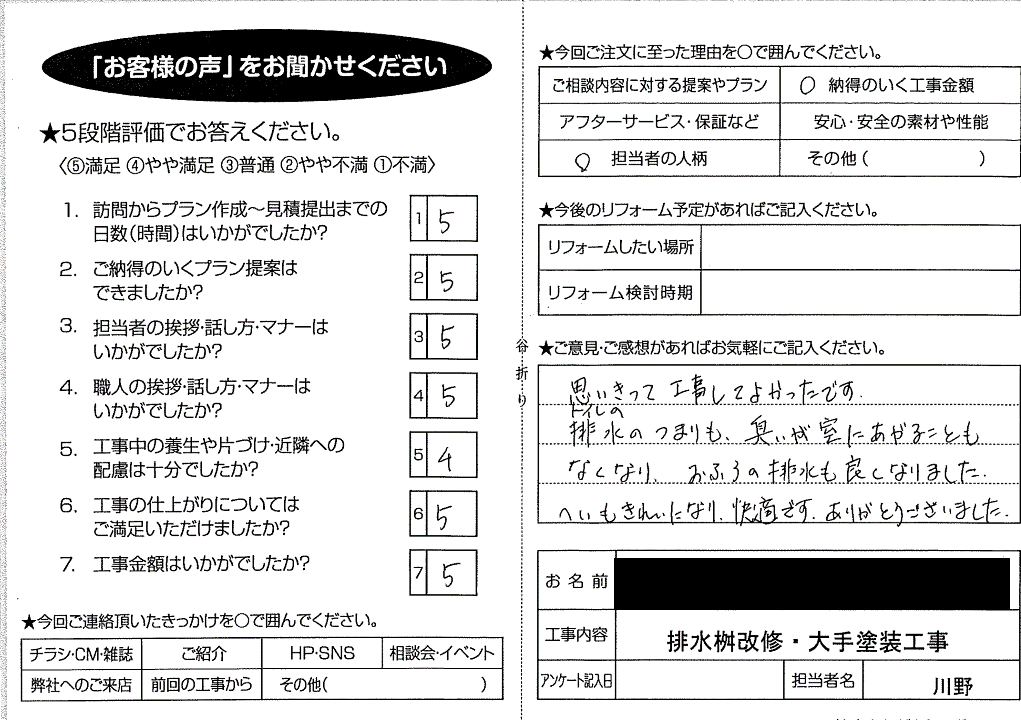 「お客様の声」をお聞かせください
★5段階評価でお答えください。
〈⑤満足 ④やや満足 ③普通 ②やや不満 ①不満〉
1. 訪問からプラン作成～見積提出までの
日数(時間)はいかがでしたか?
1 5
2. ご納得のいくプラン提案は
できましたか?
2 5
3. 担当者の挨拶・話し方・マナーは
いかがでしたか?
3 5
4. 職人の挨拶・話し方・マナーは
いかがでしたか?
4 5
5. 工事中の養生や片づけ・近隣への
配慮は十分でしたか?
5 4
6. 工事の仕上がりについては
ご満足いただけましたか?
6 5
7. 工事金額はいかがでしたか?
7 5
★今回ご連絡頂いたきっかけを○で囲んでください。
チラシ・CM・雑誌 ご紹介 HP・SNS 相談会・イベント
弊社へのご来店 前回の工事から その他( )
谷折り
★今回ご注文に至った理由を○で囲んでください。
ご相談内容に対する提案やプラン ○ 納得のいく工事金額
アフターサービス・保証など 安心・安全の素材や性能
○ 担当者の人柄 その他( )
★今後のリフォーム予定があればご記入ください。
リフォームしたい場所
リフォーム検討時期
★ご意見・ご感想があればお気軽にご記入ください。
思いきって工事してよかったです.
トイレの
排水のつまりも、臭いが室にあがることも
なくなり、おふろの排水も良くなりました.
へいもきれいになり、快適です. ありがとうございました.
お名前
工事内容 排水桝改修・大手塗装工事
アンケート記入日 担当者名 川野